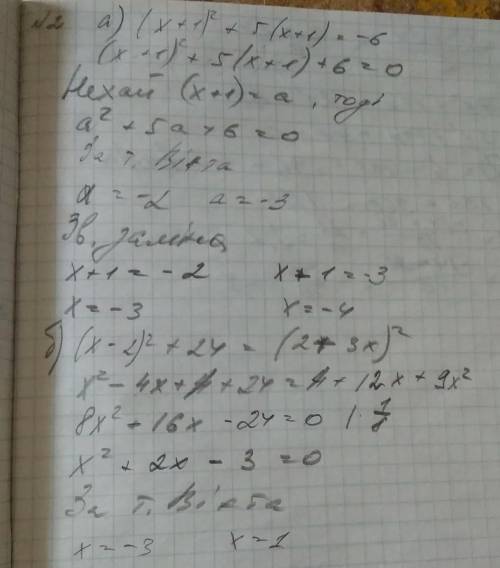 №2 а) (x+1)² + 5(x+1) = -6
(x+1)² + 5(x+1) + 6 = 0
Нехай (x+1) = a, тоді
a² + 5a + 6 = 0
За т. Вієта
a = -2 a = -3
Зв. заміна
x+1 = -2 x+1 = -3
x = -3 x = -4
б) (x-2)² + 24 = (2+3x)²
x² - 4x + 4 + 24 = 4 + 12x + 9x²
8x² + 16x - 24 = 0 | · 1/8
x² + 2x - 3 = 0
За т. Вієта
x = -3 x = 1